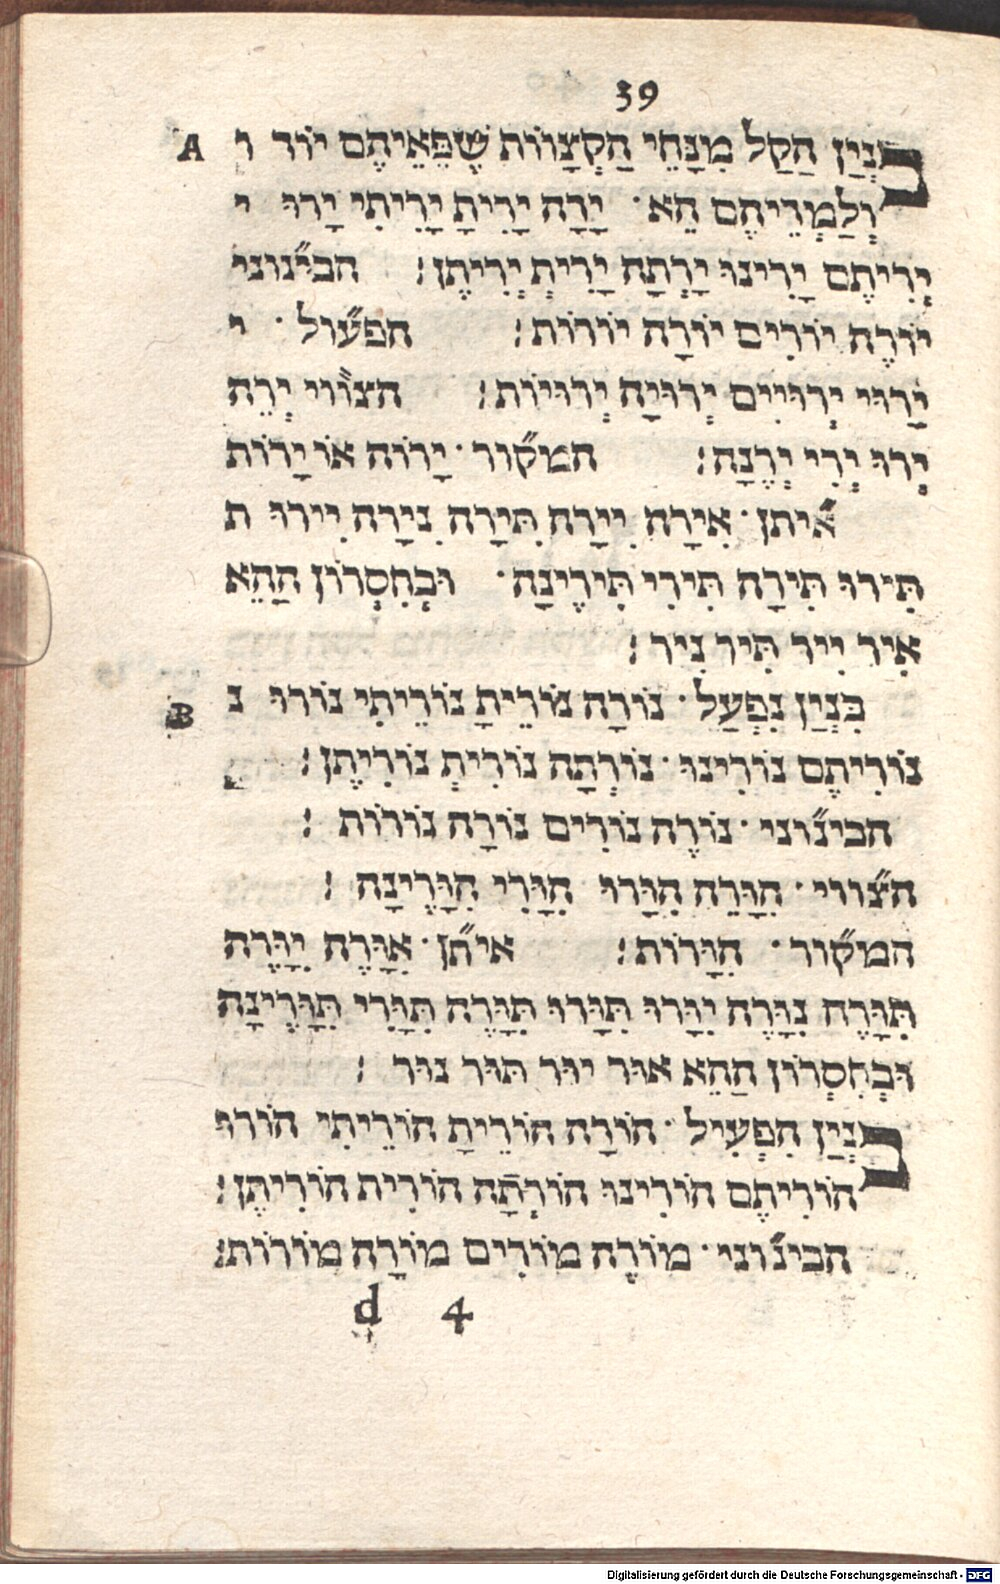 39
בִּנְיַן הַקַל מִנָּחֵי הַקְצָווֹת שֶׁפֵּאֵיהֶם יוֹד ו A
וְלַמְדֵיהֶם הֵא · יָרָה יָרִיתָ יָרִיתִי יָרוּ י
יְרִיתֶם יָרִינוּ יָרְתָה יָרִית יְרִיתֶן : הבי״נוני
יוֹרֶה יוֹרִים יוֹרָה יוֹרוֹת : הפע״ול · י
יָרוּי יְרוּיִים יְרוּיָה יְרוּיוֹת : הצו״וי יְרֵה
יְרוּ יְרִי יְרֶנָה : המק״ור · יָרוֹה אוֹ יָרוֹת
א״יתן · אִירָה יִירָה תִּירָה נִירָה יִירוּ ת
תִּירוּ תִּירָה תִּירִי תִּירֶינָה · וּבְחִסְרוֹן הַהֵא
אִיר יִיר תִּיר נִיר :
בִּנְיַן נִפְעַל · נוֹרָה נוֹרֵיתָ נוֹרֵיתִי נוֹרוּ נ B
נוֹרִיתֶם נוֹרִינוּ · נוֹרְתָה נוֹרִית נוֹרִיתֶן :
הבינ״וני · נוֹרֶה נוֹרִים נוֹרָה נוֹרוֹת :
הצ״ווי · הִוָּרֵה הִוָּרוּ הִוָּרִי הִוָּרֶינָה :
המק״ור · הִוָּרוֹת : אית״ן · אִוָּרֶה יִוָּרֶה
תִּוָּרֶה נִוָּרֶה יִוָּרוּ תִּוָּרוּ תִּוָּרֶה תִּוָּרִי תִּוָּרֶינָה
וּבְחִסְרוֹן הַהֵא אוּר יוּר תּוּר נוּר :
בִּנְיַן הִפְעִיל · הוֹרָה הוֹרֵיתָ הוֹרֵיתִי הוֹרוּ
הוֹרִיתֶם הוֹרִינוּ הוֹרְתָה הוֹרִית הוֹרִיתֶן :
הבינ״וני · מוֹרֶה מוֹרִים מוֹרָה מוֹרוֹת :
d 4
Digitalisierung gefördert durch die Deutsche Forschungsgemeinschaft - DFG